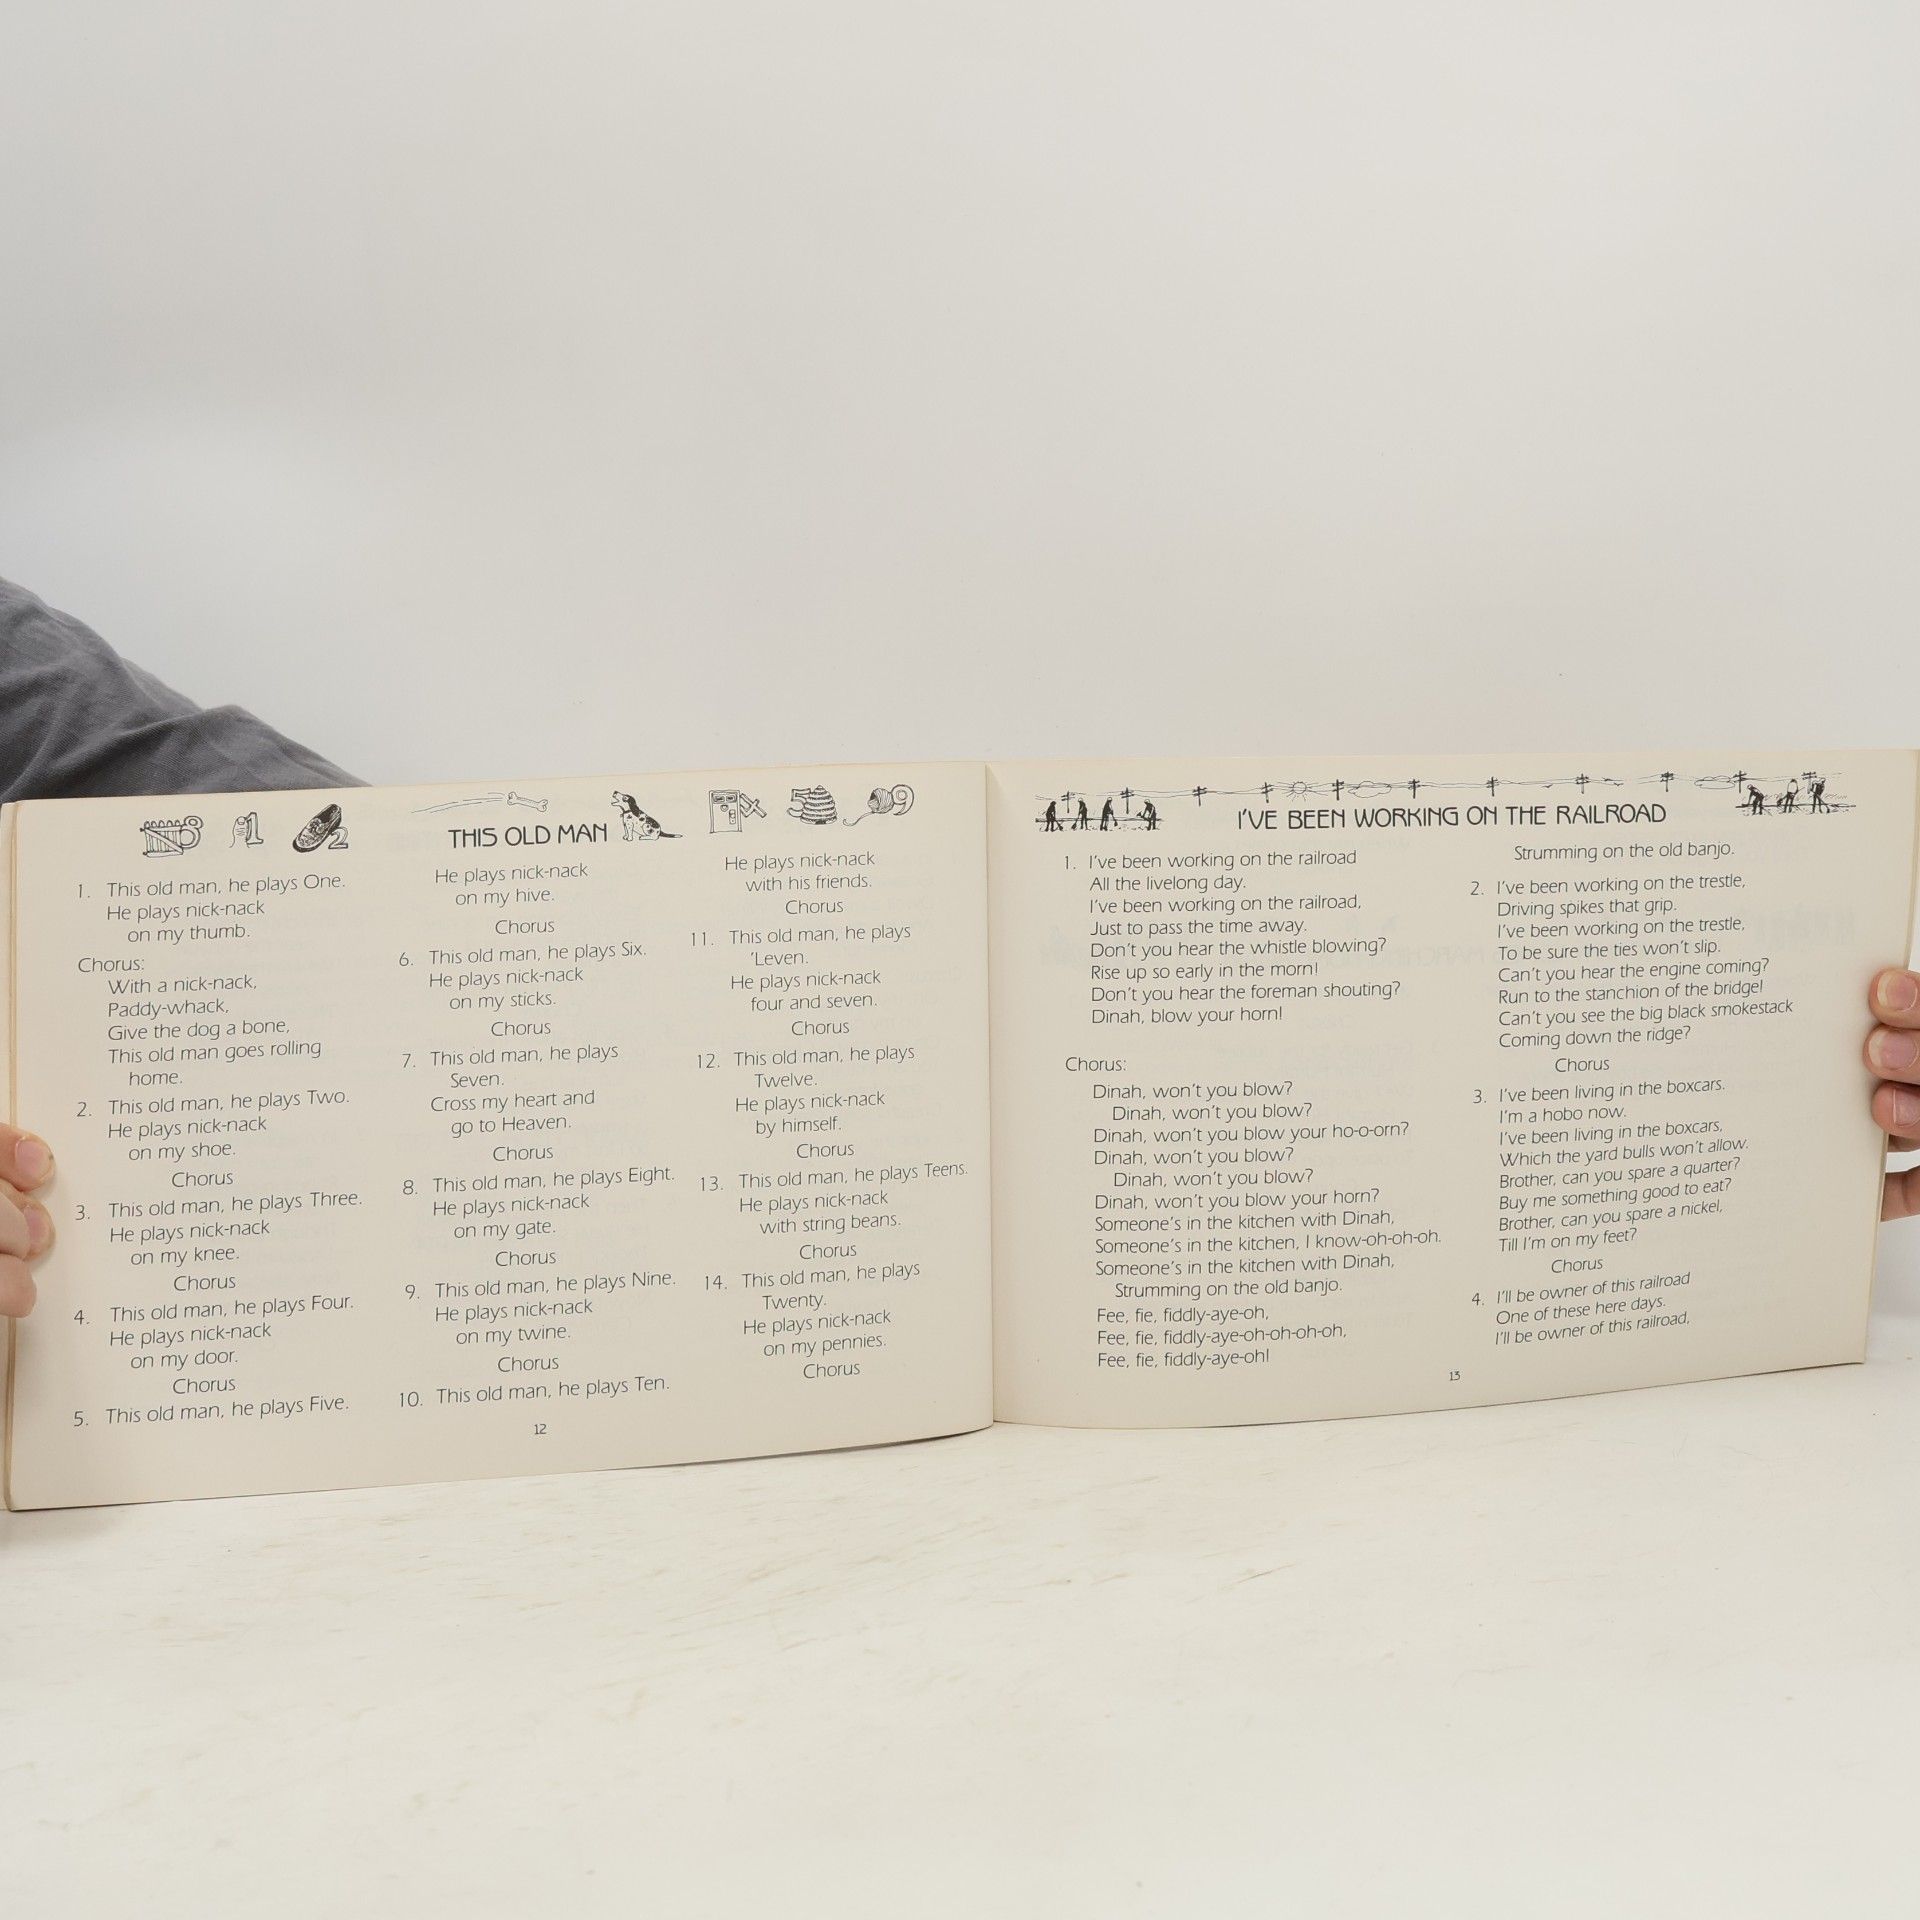 THIS OLD MAN
1. This old man, he plays One.
He plays nick-nack
on my thumb.
Chorus:
With a nick-nack,
Paddy-whack,
Give the dog a bone,
This old man goes rolling
home.
2. This old man, he plays Two.
He plays nick-nack
on my shoe.
Chorus
3. This old man, he plays Three.
He plays nick-nack
on my knee.
Chorus
4. This old man, he plays Four.
He plays nick-nack
on my door.
Chorus
5. This old man, he plays Five.
He plays nick-nack
on my hive.
Chorus
6. This old man, he plays Six.
He plays nick-nack
on my sticks.
Chorus
7. This old man, he plays
Seven.
Cross my heart and
go to Heaven.
Chorus
8. This old man, he plays Eight.
He plays nick-nack
on my gate.
Chorus
9. This old man, he plays Nine.
He plays nick-nack
on my twine.
Chorus
10. This old man, he plays Ten.
He plays nick-nack
with his friends.
Chorus
11. This old man, he plays
'Leven.
He plays nick-nack
four and seven.
Chorus
12. This old man, he plays
Twelve.
He plays nick-nack
by himself.
Chorus
13. This old man, he plays Teens.
He plays nick-nack
with string beans.
Chorus
14. This old man, he plays
Twenty.
He plays nick-nack
on my pennies.
Chorus
12
I'VE BEEN WORKING ON THE RAILROAD
1. I've been working on the railroad
All the livelong day.
I've been working on the railroad,
Just to pass the time away.
Don't you hear the whistle blowing?
Rise up so early in the morn!
Don't you hear the foreman shouting?
Dinah, blow your horn!
Chorus:
Dinah, won't you blow?
Dinah, won't you blow?
Dinah, won't you blow your ho-o-orn?
Dinah, won't you blow?
Dinah, won't you blow?
Dinah, won't you blow your horn?
Someone's in the kitchen with Dinah,
Someone's in the kitchen, I know-oh-oh-oh.
Someone's in the kitchen with Dinah,
Strumming on the old banjo.
Fee, fie, fiddly-aye-oh,
Fee, fie, fiddly-aye-oh-oh-oh-oh,
Fee, fie, fiddly-aye-oh!
Strumming on the old banjo.
2. I've been working on the trestle,
Driving spikes that grip.
I've been working on the trestle,
To be sure the ties won't slip.
Can't you hear the engine coming?
Run to the stanchion of the bridge!
Can't you see the big black smokestack
Coming down the ridge?
Chorus
3. I've been living in the boxcars.
I'm a hobo now.
I've been living in the boxcars,
Which the yard bulls won't allow.
Brother, can you spare a quarter?
Buy me something good to eat?
Brother, can you spare a nickel,
Till I'm on my feet?
Chorus
4. I'll be owner of this railroad
One of these here days.
I'll be owner of this railroad,
13